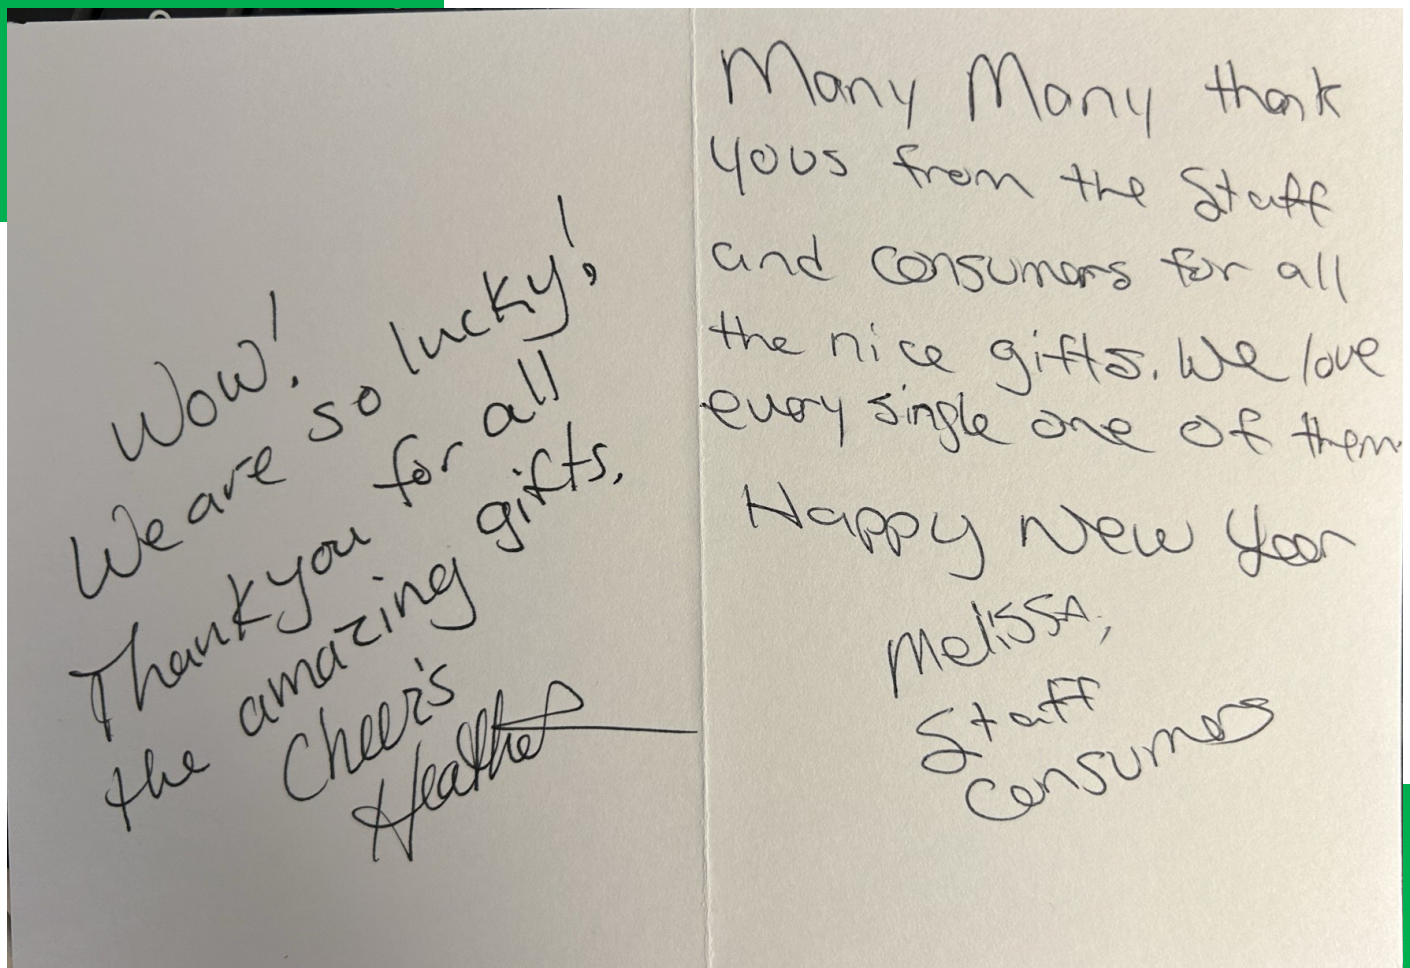 Wow!
We are so lucky!
Thankyou for all
the amazing gifts.
Cheer's
Heather
Many Many thank
yous from the Staff
and consumers for all
the nice gifts. We love
every single one of them.
Happy New Year
Melissa,
Staff
Consumers